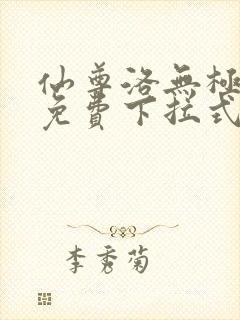 仙尊洛無極
免費下拉式
李秀菊